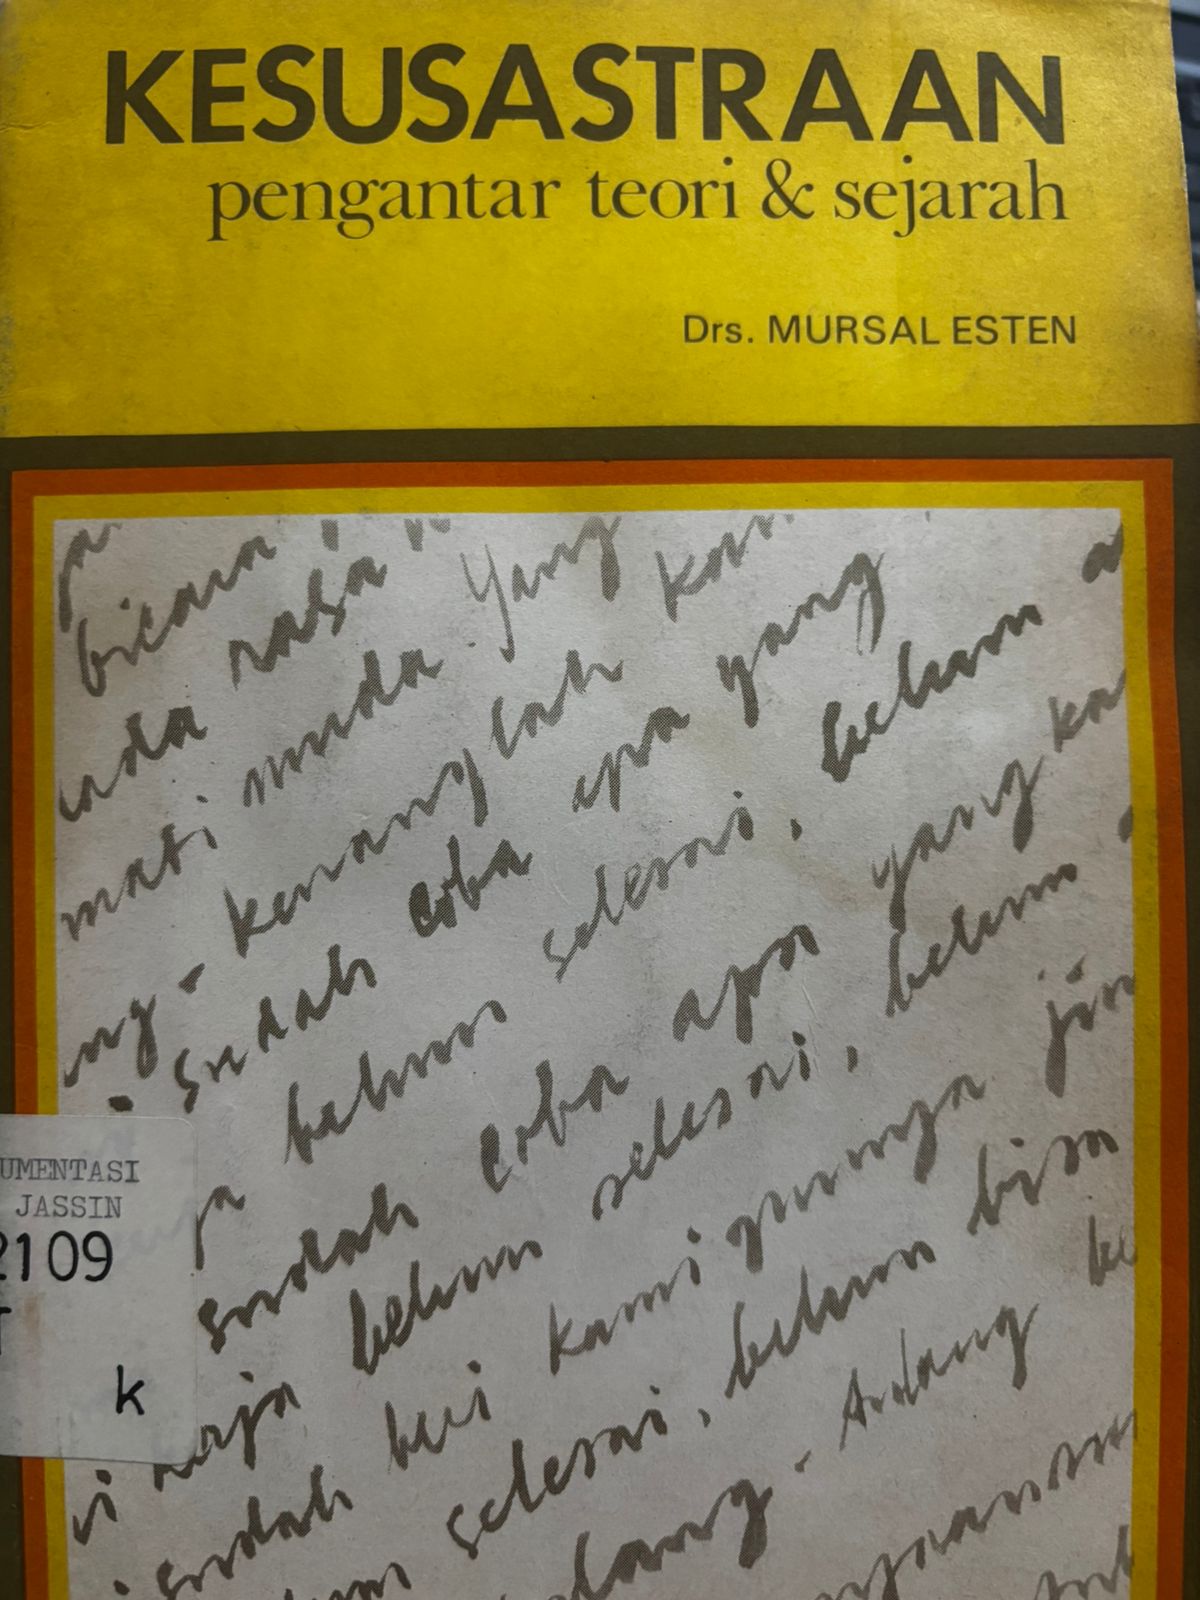 KESUSASTRAAN
pengantar teori & sejarah
Drs. MURSAL ESTEN
bicara
ada rasa
mati muda. Yang
kenanglah
ng-
Sudah coba apa yang
belum selesai, belum
Sudah coba apa yang
kerja belum selesai, belum
Sudah beri kami punya
selesai, belum bisa
UMENTASI
JASSIN
2109
k